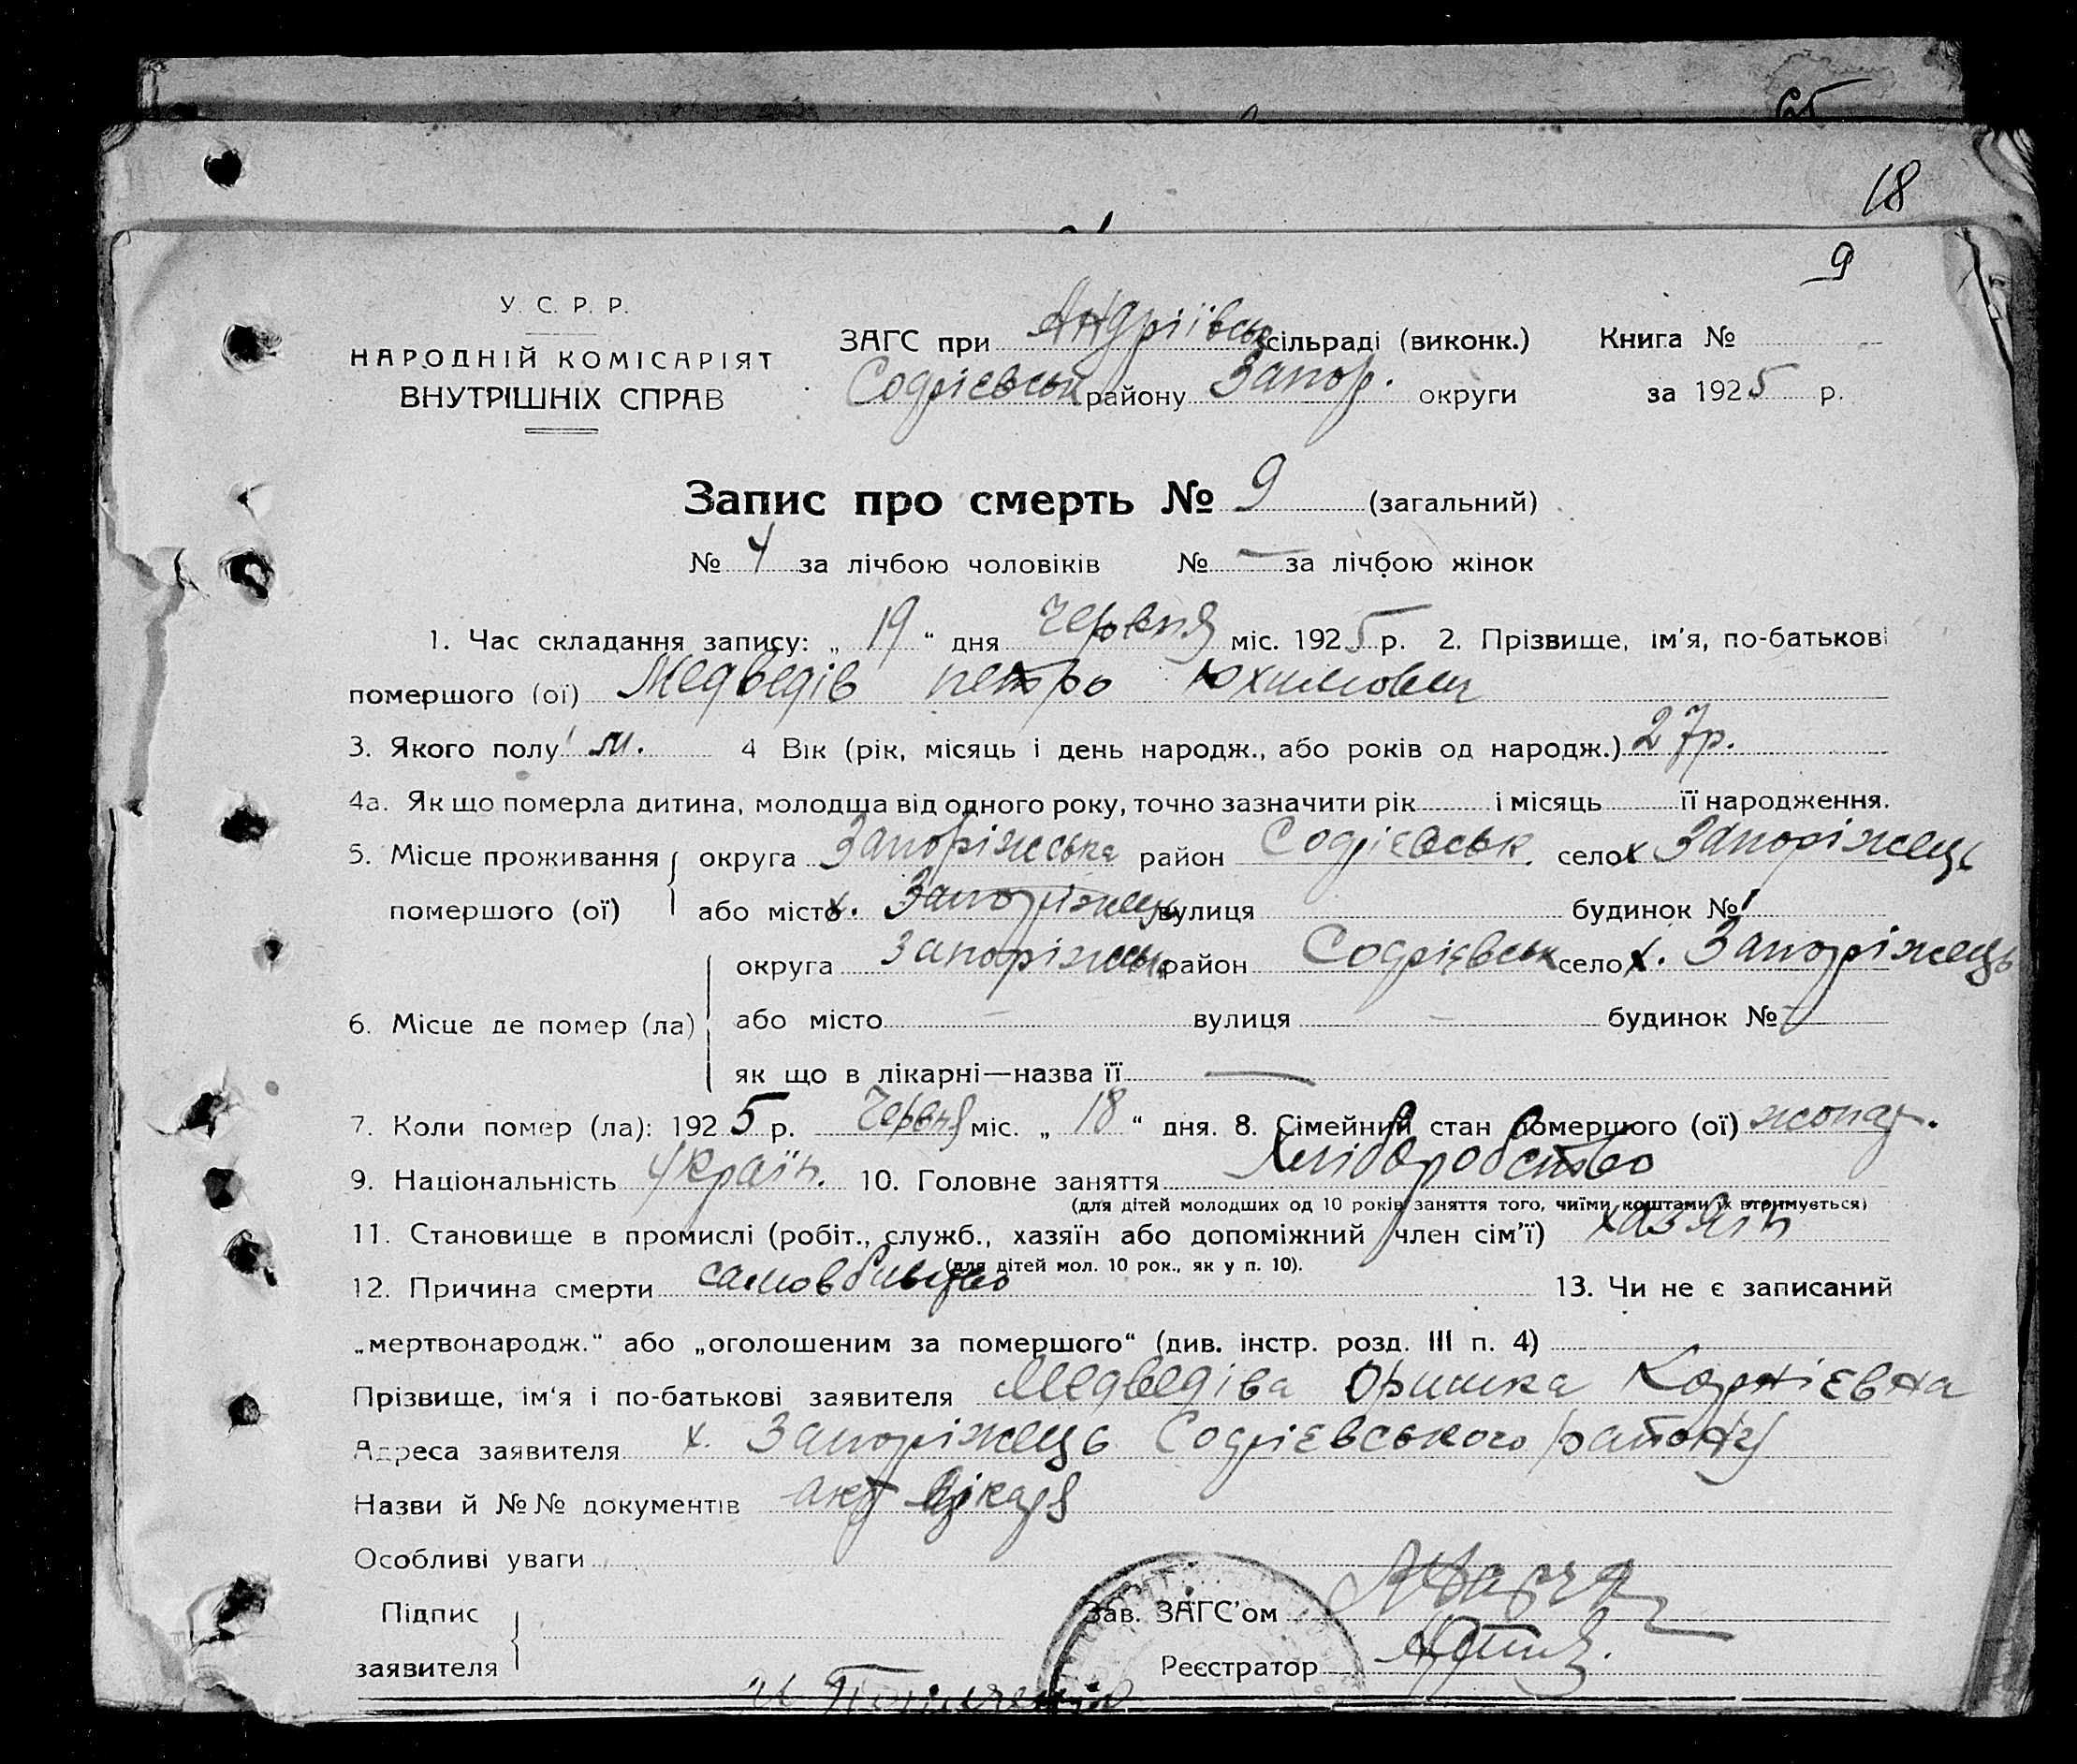 18
9
У. С. Р. Р.
НАРОДНІЙ КОМІСАРІЯТ
ВНУТРІШНІХ СПРАВ
ЗАГС при Андріївськ сільраді (виконк.) Книга №
Софієвськ району Запор. округи за 1925 р.
Запис про смерть № 9 (загальний)
№ 4 за лічбою чоловіків № — за лічбою жінок
1. Час складання запису: „ 19 “ дня Червня міс. 1925 р. 2. Прізвище, ім'я, по-батькові
помершого (ої) Медведів Петро Юхимович
3. Якого полу м. 4 Вік (рік, місяць і день народж., або років од народж.) 27р.
4а. Як що померла дитина, молодша від одного року, точно зазначити рік і місяць її народження.
5. Місце проживання округа Запоріжська район Софієвськ. село х Запоріжець
помершого (ої) або місто х. Запоріжець вулиця будинок №
округа Запоріжськ район Софієвськ село х. Запоріжець
6. Місце де помер (ла) або місто — вулиця — будинок № —
як що в лікарні—назва її —
7. Коли помер (ла): 1925 р. Червня міс. „ 18 “ дня. 8. Сімейний стан помершого (ої) жонат.
9. Національність Україн. 10. Головне заняття Хліборобство
(для дітей молодших од 10 років заняття того, чиїми коштами їх втримується)
11. Становище в промислі (робіт., служб., хазяїн або допоміжний член сім'ї) хазяїн
(для дітей мол. 10 рок., як у п. 10).
12. Причина смерти самовбивство 13. Чи не є записаний
„мертвонародж.“ або „оголошеним за помершого“ (див. інстр. розд. III п. 4)
Прізвище, ім'я і по-батькові заявителя Медведіва Оришка Корнієвна
Адреса заявителя х. Запоріжець Софієвського району
Назви й №№ документів акт лікаря
Особливі уваги
Підпис Зав. ЗАГС'ом
заявителя Реєстратор